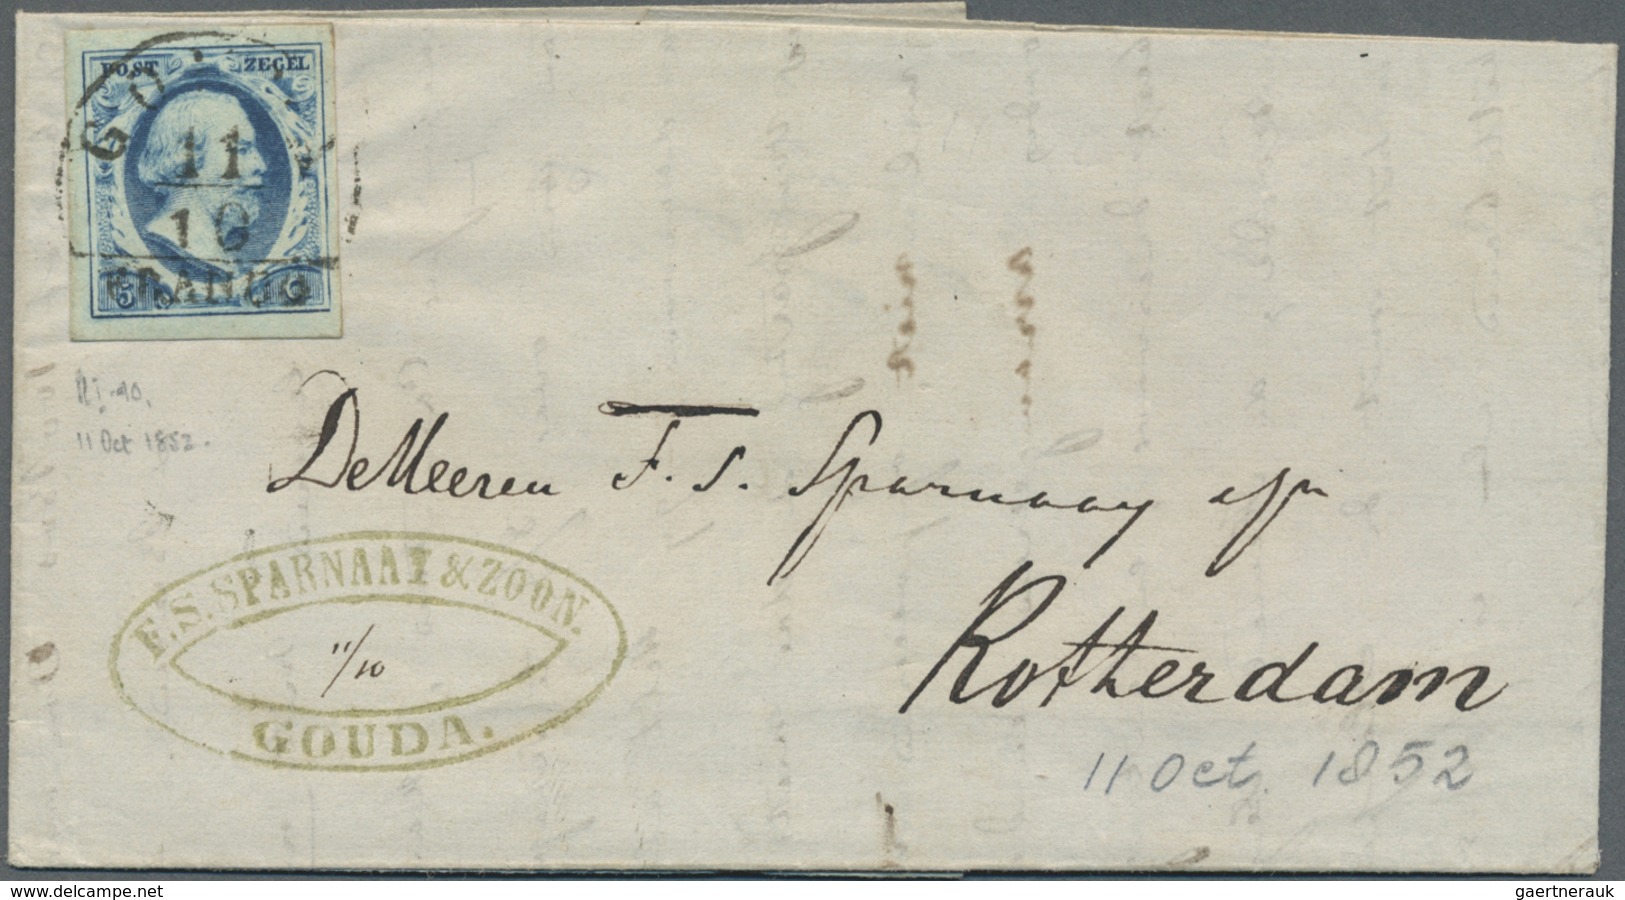 POST ZEGEL
GO
11
10
FRANCO
5 C
11 Oct 1852.
De Heeren F. S. Sparnaay
Rotterdam
F. S. SPARNAAY & ZOON.
11/10
GOUDA.
11 Oct. 1852
www.delcampe.net
gaertnerauk